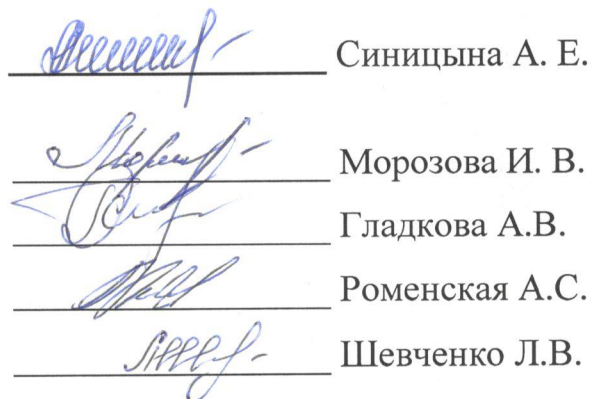 Синицына А. Е.
Морозова И. В.
Гладкова А.В.
Роменская А.С.
Шевченко Л.В.